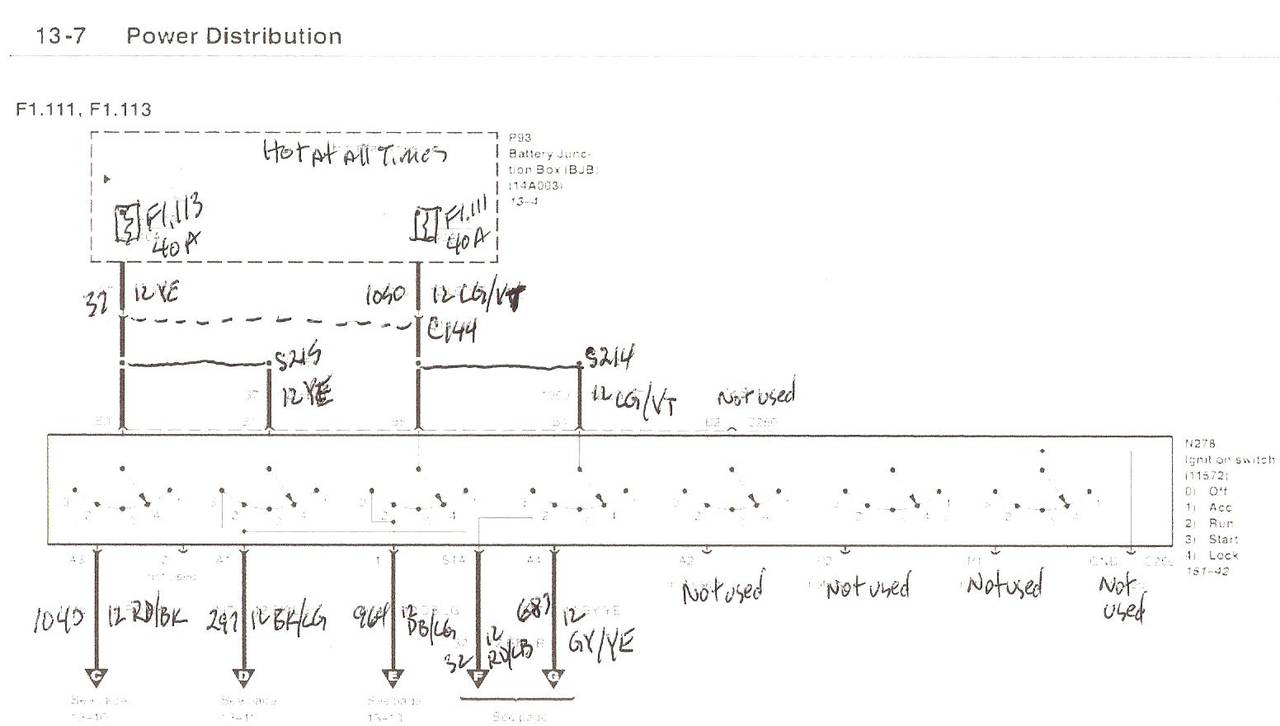 13-7 Power Distribution
F1.111, F1.113
Hot At All Times
P93
Battery Junc-
tion Box (BJB)
(14A003)
13-4
F1.113
40A
F1.111
40A
37
12 YE
1050
12 LG/VT
C144
S215
S214
37
12 YE
12 LG/VT
Not used
B2
N278
Ignition switch
(11572)
0) Off
1) Acc
2) Run
3) Start
4) Lock
151-42
A3
2
A1
1
STA
A4
A2
P2
P1
GND
not used
Not used
Not used
Not used
Not
used
1040
12 RD/BK
297
12 BK/LG
964
12
DB/LG
32
12
RD/LB
687
12
GY/YE
C
D
E
F
G
See page
13-10
See page
13-11
See page
13-13
See page